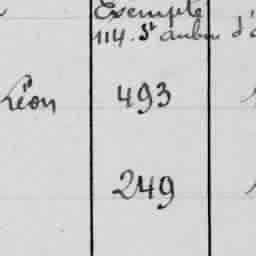 Exemple
114. St aubin d'
Léon 493
249